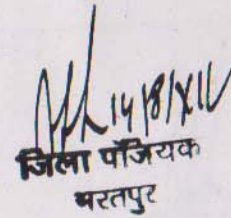 14/8/XIV
जिला पंजियक
भरतपुर